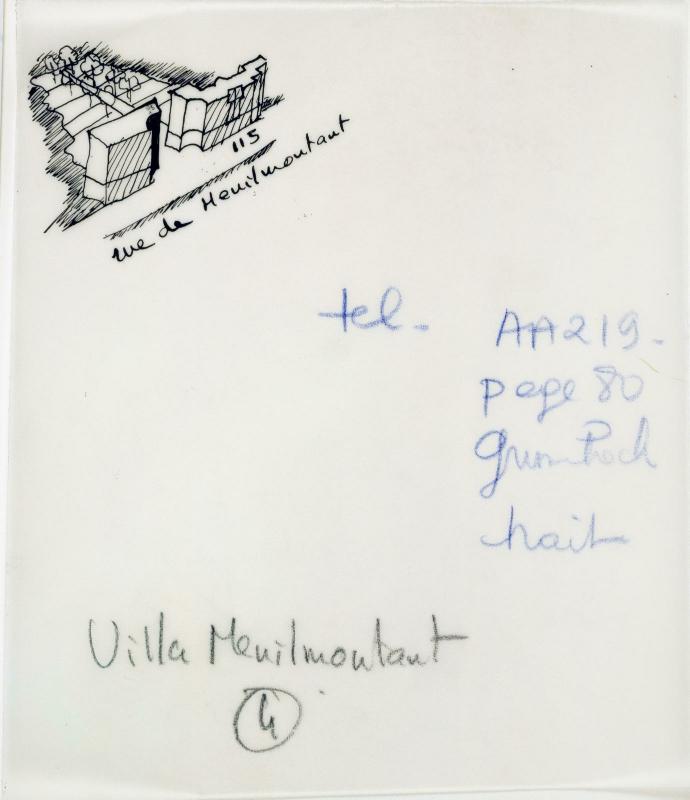 115
rue de Menilmontant
tel. AA219.
page 80
Grumbach
trait
Villa Menilmontant
4